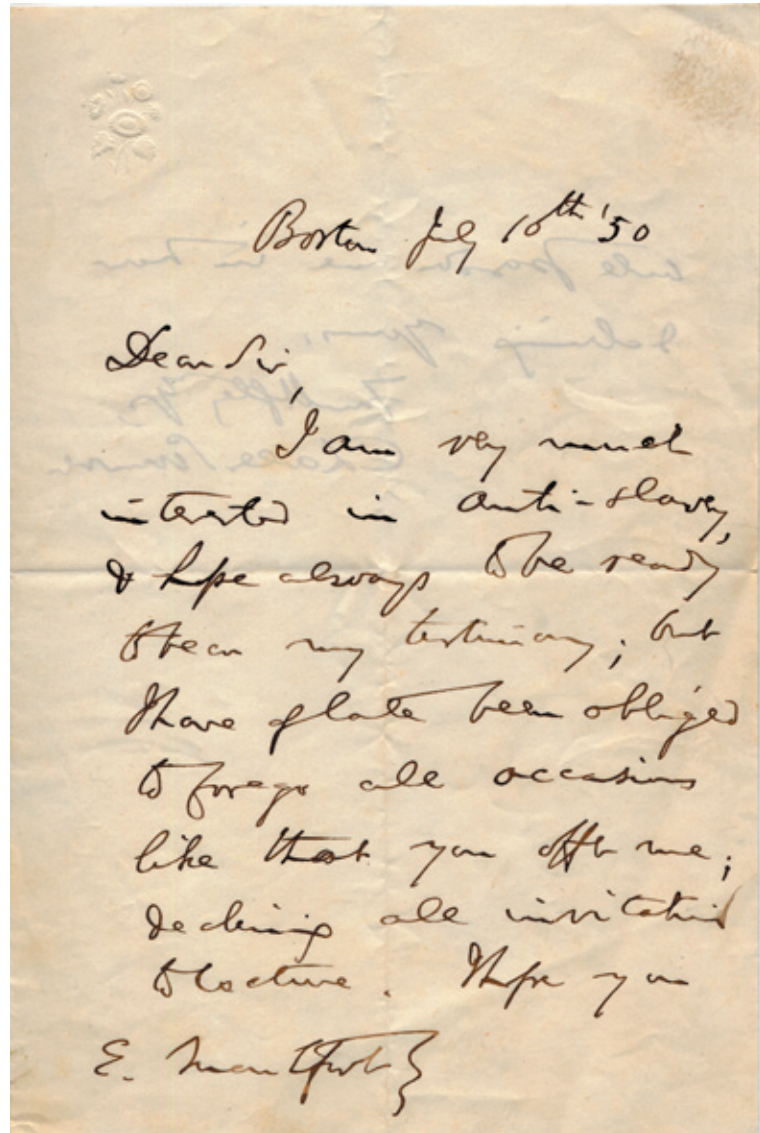 Boston July 10th '50
Dear Sir,
I am very much
interested in anti-slavery,
& hope always to be ready
to bear my testimony; but
I have of late been obliged
to forego all occasions
like that you offer me;
declining all invitations
to lecture. I hope you
E.